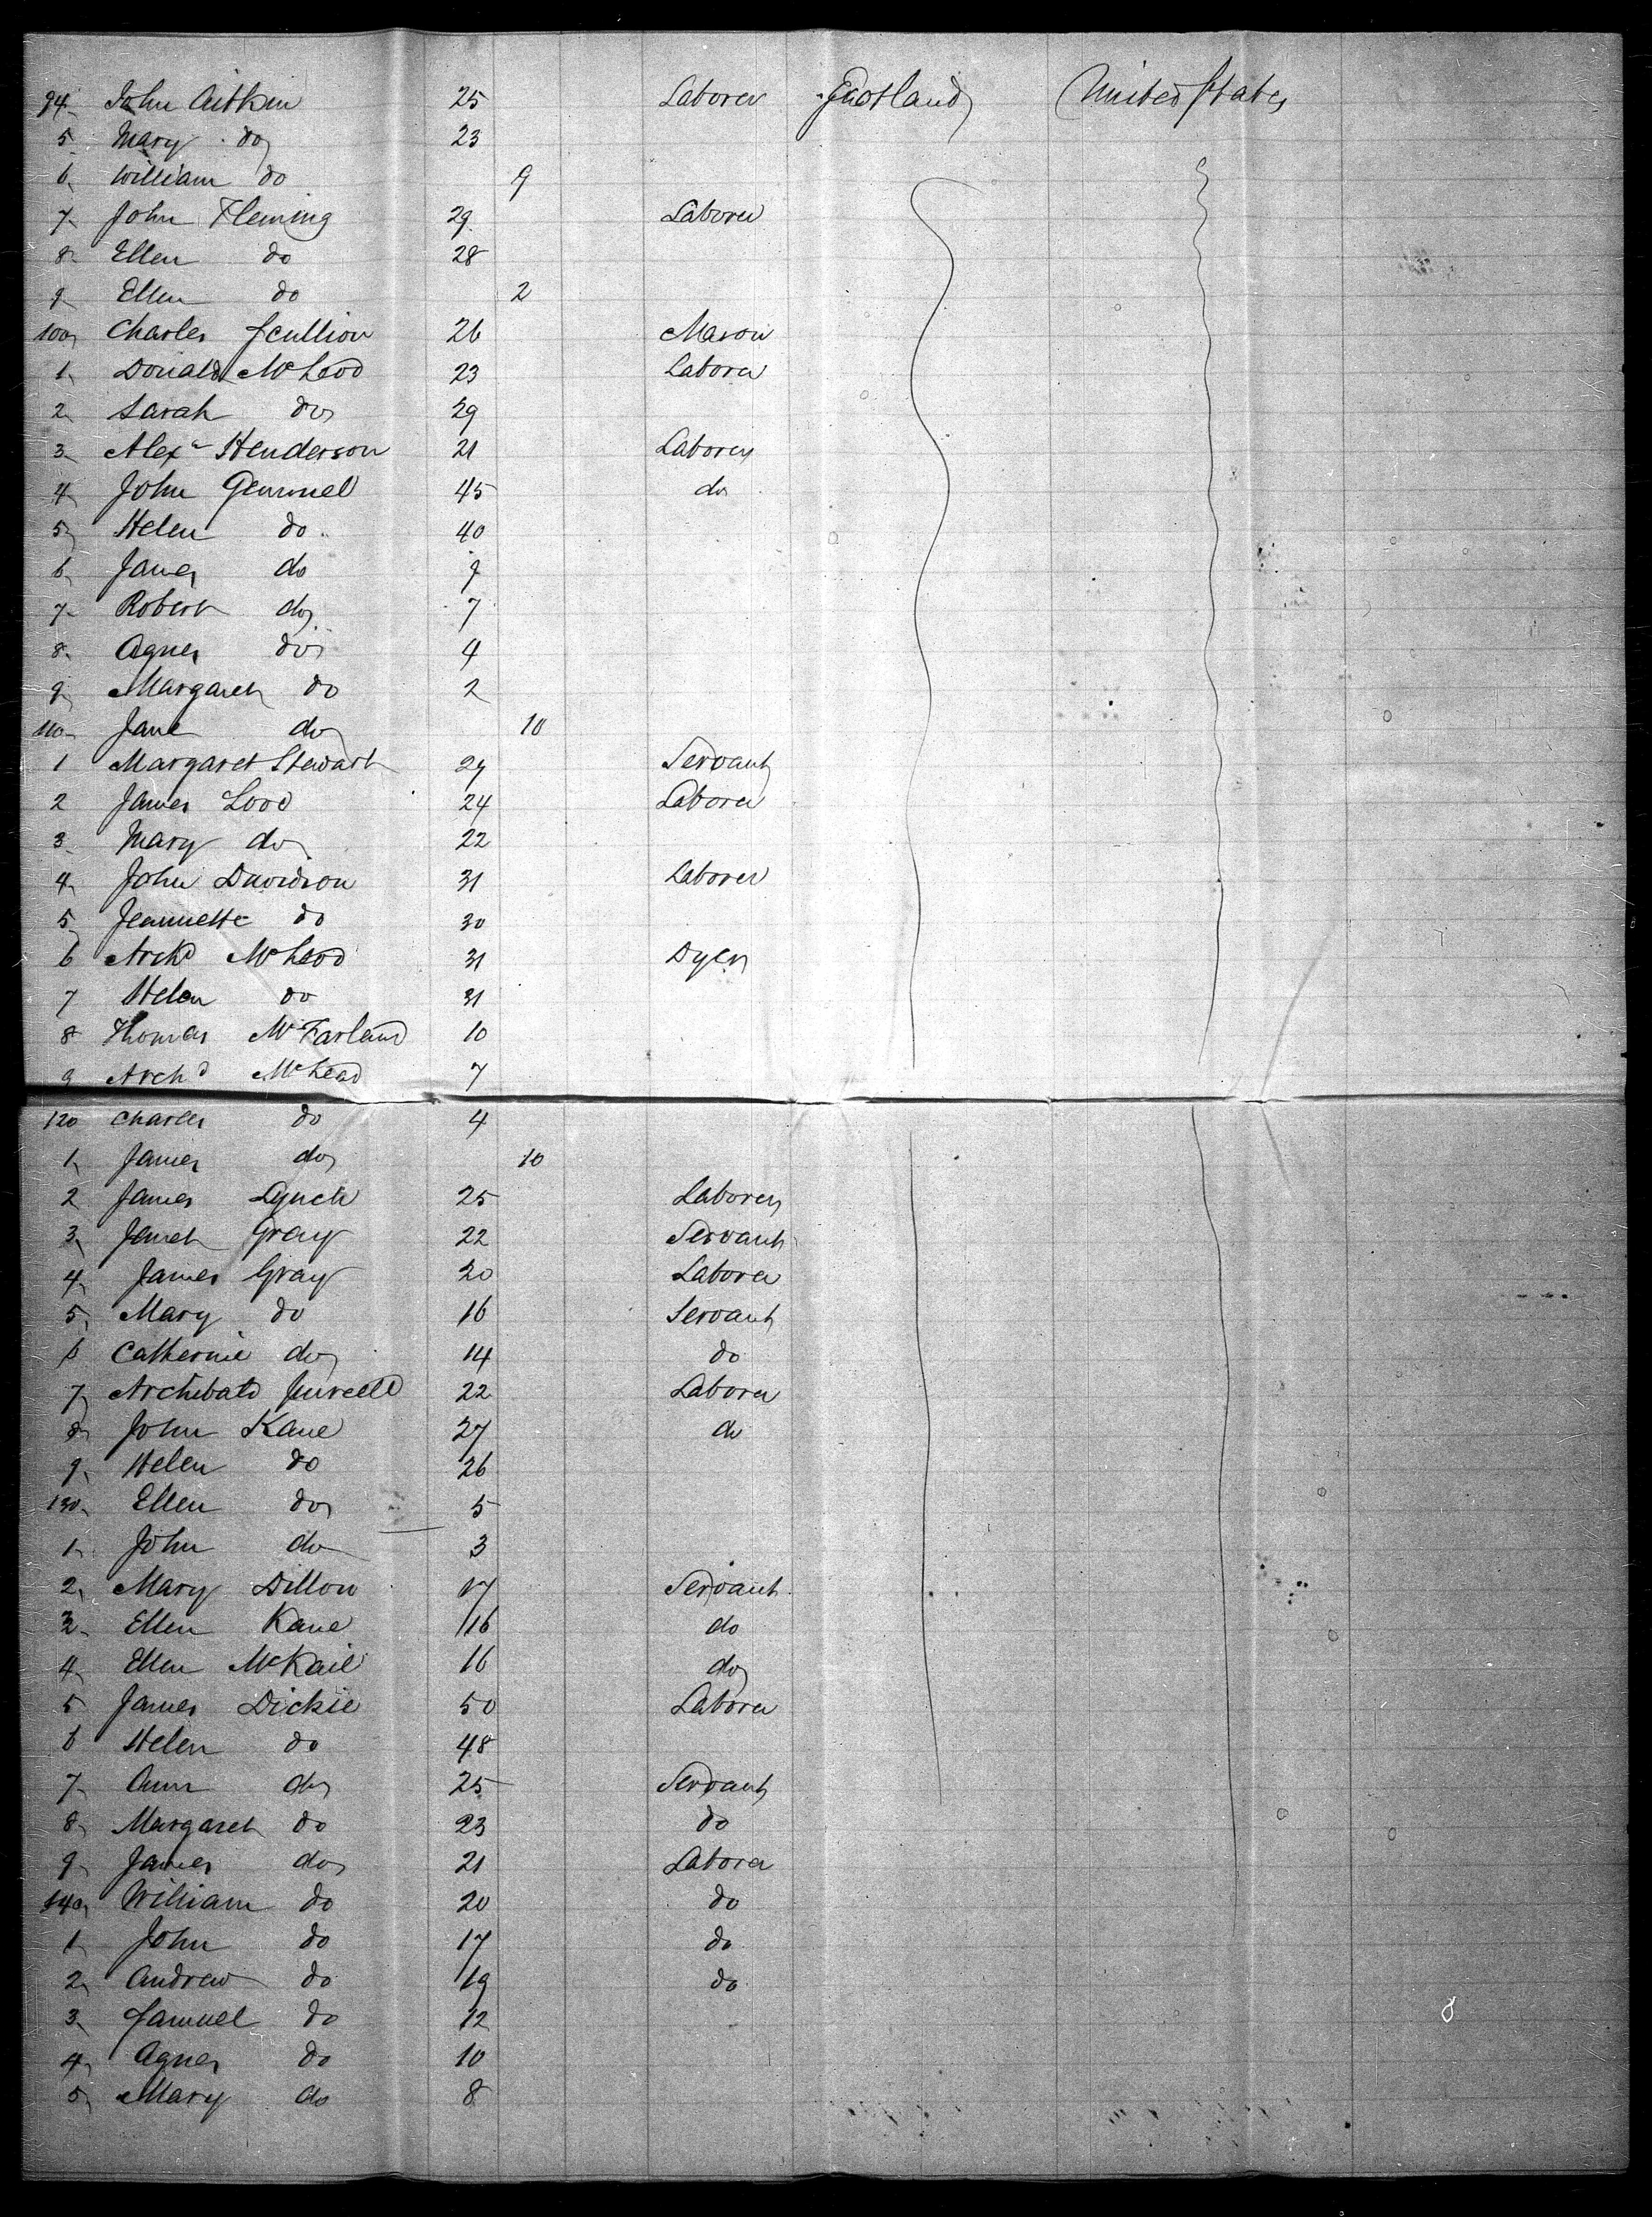 94 John Aitken 25 Laborer Scotland United States
5 Mary do 23
6 William do 9
7 John Fleming 29 Laborer
8 Ellen do 28
9 Ellen do 2
100 Charles Scullion 26 Mason
1 Donald McLeod 23 Laborer
2 Sarah do 29
3 Alexr Henderson 21 Laborer
4 John Gemmel 45 do
5 Helen do 40
6 James do 9
7 Robert do 7
8 Agnes do 4
9 Margaret do 2
110 Jane do 10
1 Margaret Stewart 24 Servant
2 James Lood 24 Laborer
3 Mary do 22
4 John Davidson 31 Laborer
5 Jeannette do 30
6 Archd McLeod 31 Dyer
7 Helen do 31
8 Thomas McFarland 10
9 Archd McLeod 7
120 Charles do 4
1 James do 10
2 James Lynch 25 Laborer
3 Janet Gray 22 Servant
4 James Gray 20 Laborer
5 Mary do 16 Servant
6 Catherine do 14 do
7 Archibald 22 Laborer
8 John Kane 27 do
9 Helen do 26
130 Ellen do 5
1 John do 3
2 Mary Dillon 17 Servant
3 Ellen Kane 16 do
4 Ellen McKail 16 do
5 James Dickie 50 Laborer
6 Helen do 48
7 Ann do 25 Servant
8 Margaret do 23 do
9 James do 21 Laborer
140 William do 20 do
1 John do 17 do
2 Andrew do 19 do
3 Samuel do 12
4 Agnes do 10
5 Mary do 8